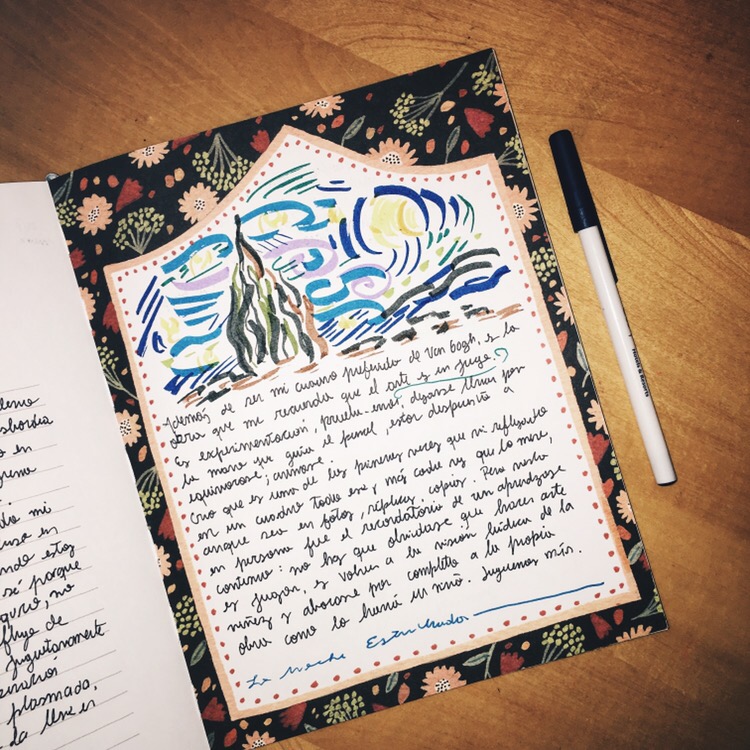 Además de ser mi cuadro preferido de Van Gogh, es la
obra que me recuerda que el arte es un juego.
Es experimentación, prueba-error, dejarse llevar por
la mano que guía el pincel, estar dispuesta a
equivocarse; animarse.
Creo que es una de las primeras veces que vi reflejado
en un cuadro todo eso y más cada vez que lo miro,
aunque sea en fotos, réplicas, copias. Pero verlo
en persona fue el recordatorio de un aprendizaje
continuo: no hay que olvidarse que hacer arte
es jugar, es volver a la visión lúdica de la
niñez y abocarse por completo a la propia
obra como lo haría un niño. Juguemos más.
La Noche Estrellada
en
mi
estoy
sé porque
no
flujo de
juguetonamente
plasmado,